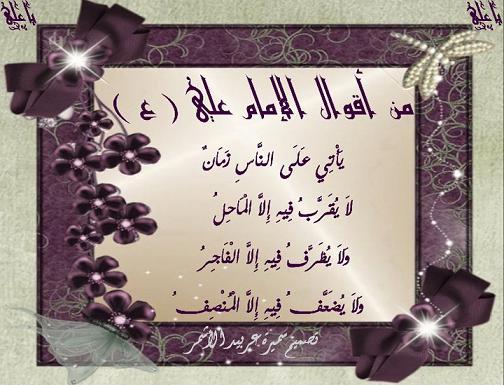 يا علي
يا علي
من أقوال الإمام علي ( ع )
يَأْتِي عَلَى النَّاسِ زَمَانٌ
لَا يُقَرَّبُ فِيهِ إِلَّا الْمَاحِلُ
وَلَا يُظَرَّفُ فِيهِ إِلَّا الْفَاجِرُ
وَلَا يُضَعَّفُ فِيهِ إِلَّا الْمُنْصِفُ
تصميم سميرة عبيد الأشمر